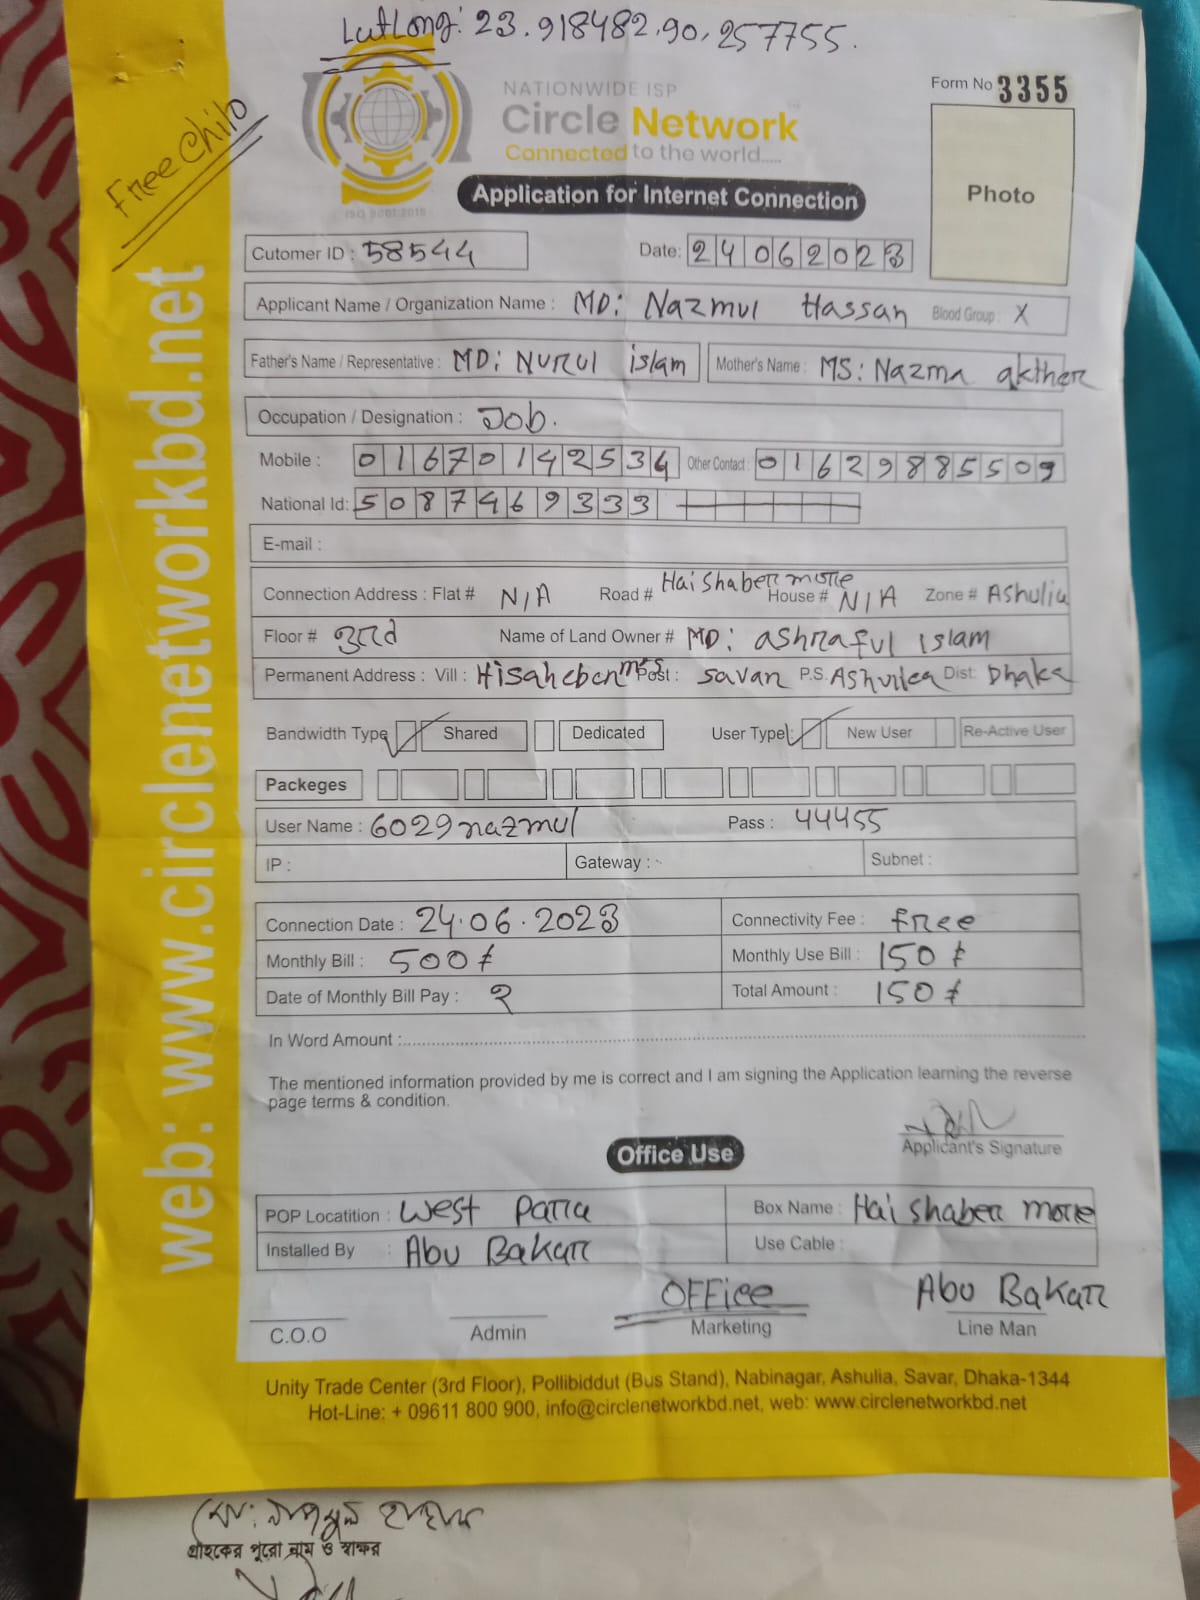 LatLong: 23.918482.90.257755.
Free Chilo
NATIONWIDE ISP
Circle Network
Connected to the world.....
ISO 9001:2015
Form No 3355
Photo
Application for Internet Connection
Cutomer ID : 58544 Date: 24062023
Applicant Name / Organization Name : MD: Nazmul Hassan Blood Group : X
Father's Name / Representative : MD: NURUl islam Mother's Name : MS: Nazma akther
Occupation / Designation : Job.
Mobile : 01670142534 Other Contact : 01629885509
National Id: 5087469333
E-mail :
Connection Address : Flat # N/A Road # Hai Shaber more House # N/A Zone # Ashulia
Floor # 3rd Name of Land Owner # MD: ashraful islam
Permanent Address : Vill : Post : savar P.S. Dist: Dhaka
Bandwidth Type Shared Dedicated User Type: New User Re-Active User
Packeges
User Name : 6029nazmul Pass : 44455
IP : Gateway : Subnet :
Connection Date : 24.06.2023 Connectivity Fee : free
Monthly Bill : 500/ Monthly Use Bill : 150/
Date of Monthly Bill Pay : ২ Total Amount : 150/
In Word Amount :
The mentioned information provided by me is correct and I am signing the Application learning the reverse
page terms & condition.
Applicant's Signature
Office Use
POP Locatition : West Para Box Name : Hai shaber more
Installed By : Abu Bakar Use Cable :
OFFice Abu Bakar
C.O.O Admin Marketing Line Man
Unity Trade Center (3rd Floor), Pollibiddut (Bus Stand), Nabinagar, Ashulia, Savar, Dhaka-1344
Hot-Line: + 09611 800 900, info@circlenetworkbd.net, web: www.circlenetworkbd.net
web: www.circlenetworkbd.net
মো: নাজমুল হাসান
গ্রাহকের পুরো নাম ও স্বাক্ষর